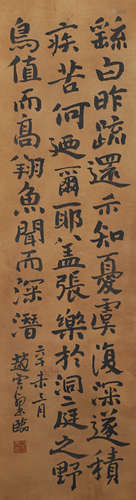 繇白昨疏還示知憂虞復深遂積
疾苦何迺爾耶蓋張樂於洞庭之野
鳥值而高翔魚聞而深潛
未三月
趙雲壑臨